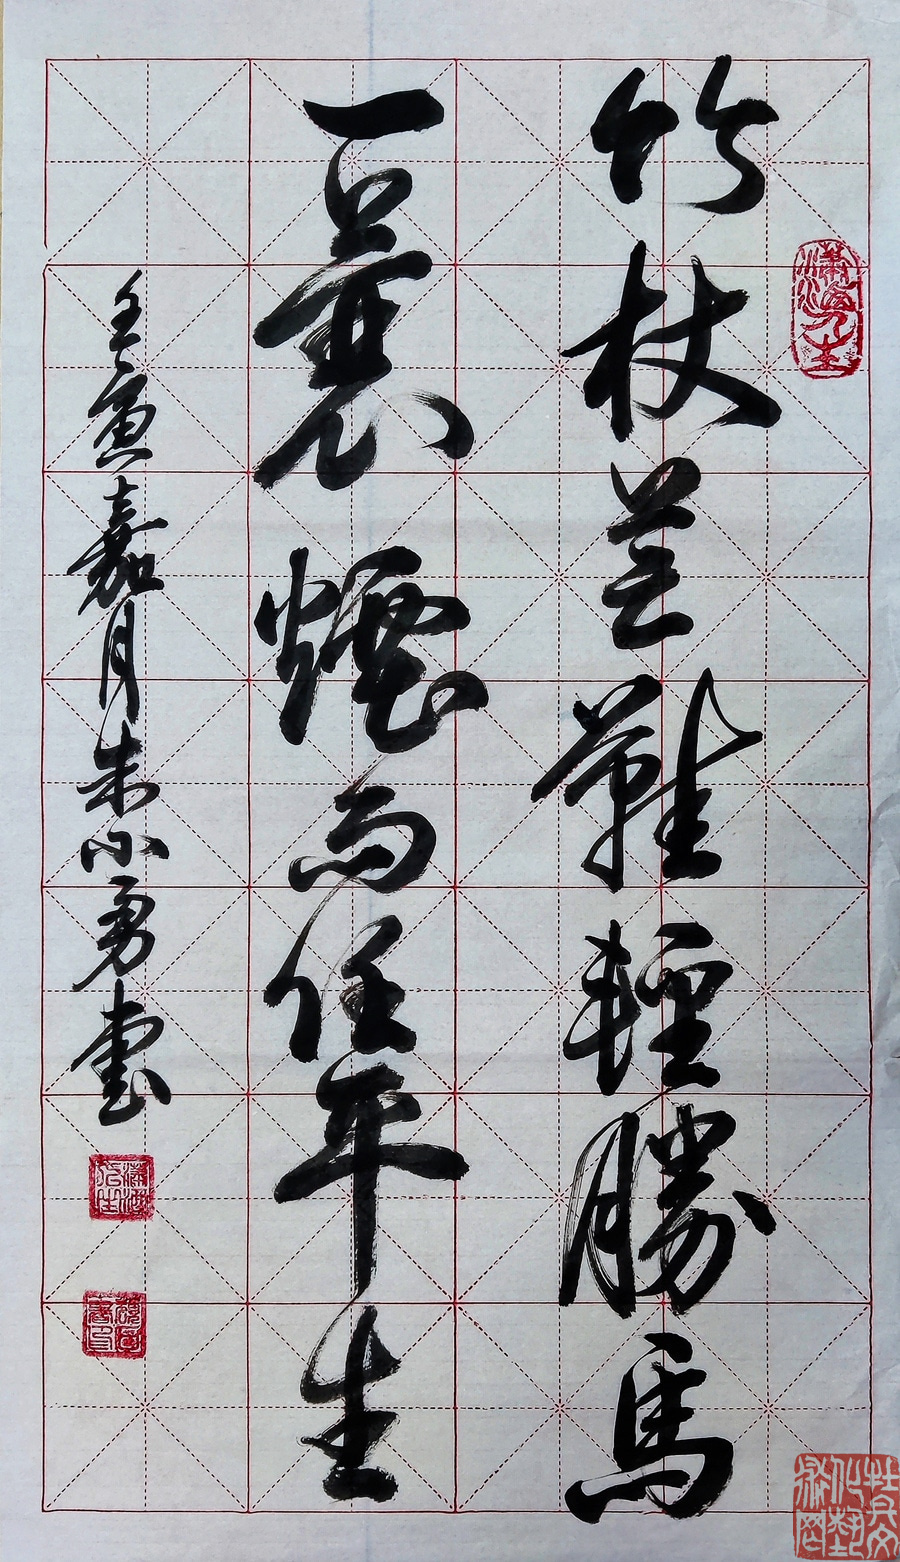 竹杖芒鞋輕勝馬
一蓑煙雨任平生
壬寅嘉月朱小勇書